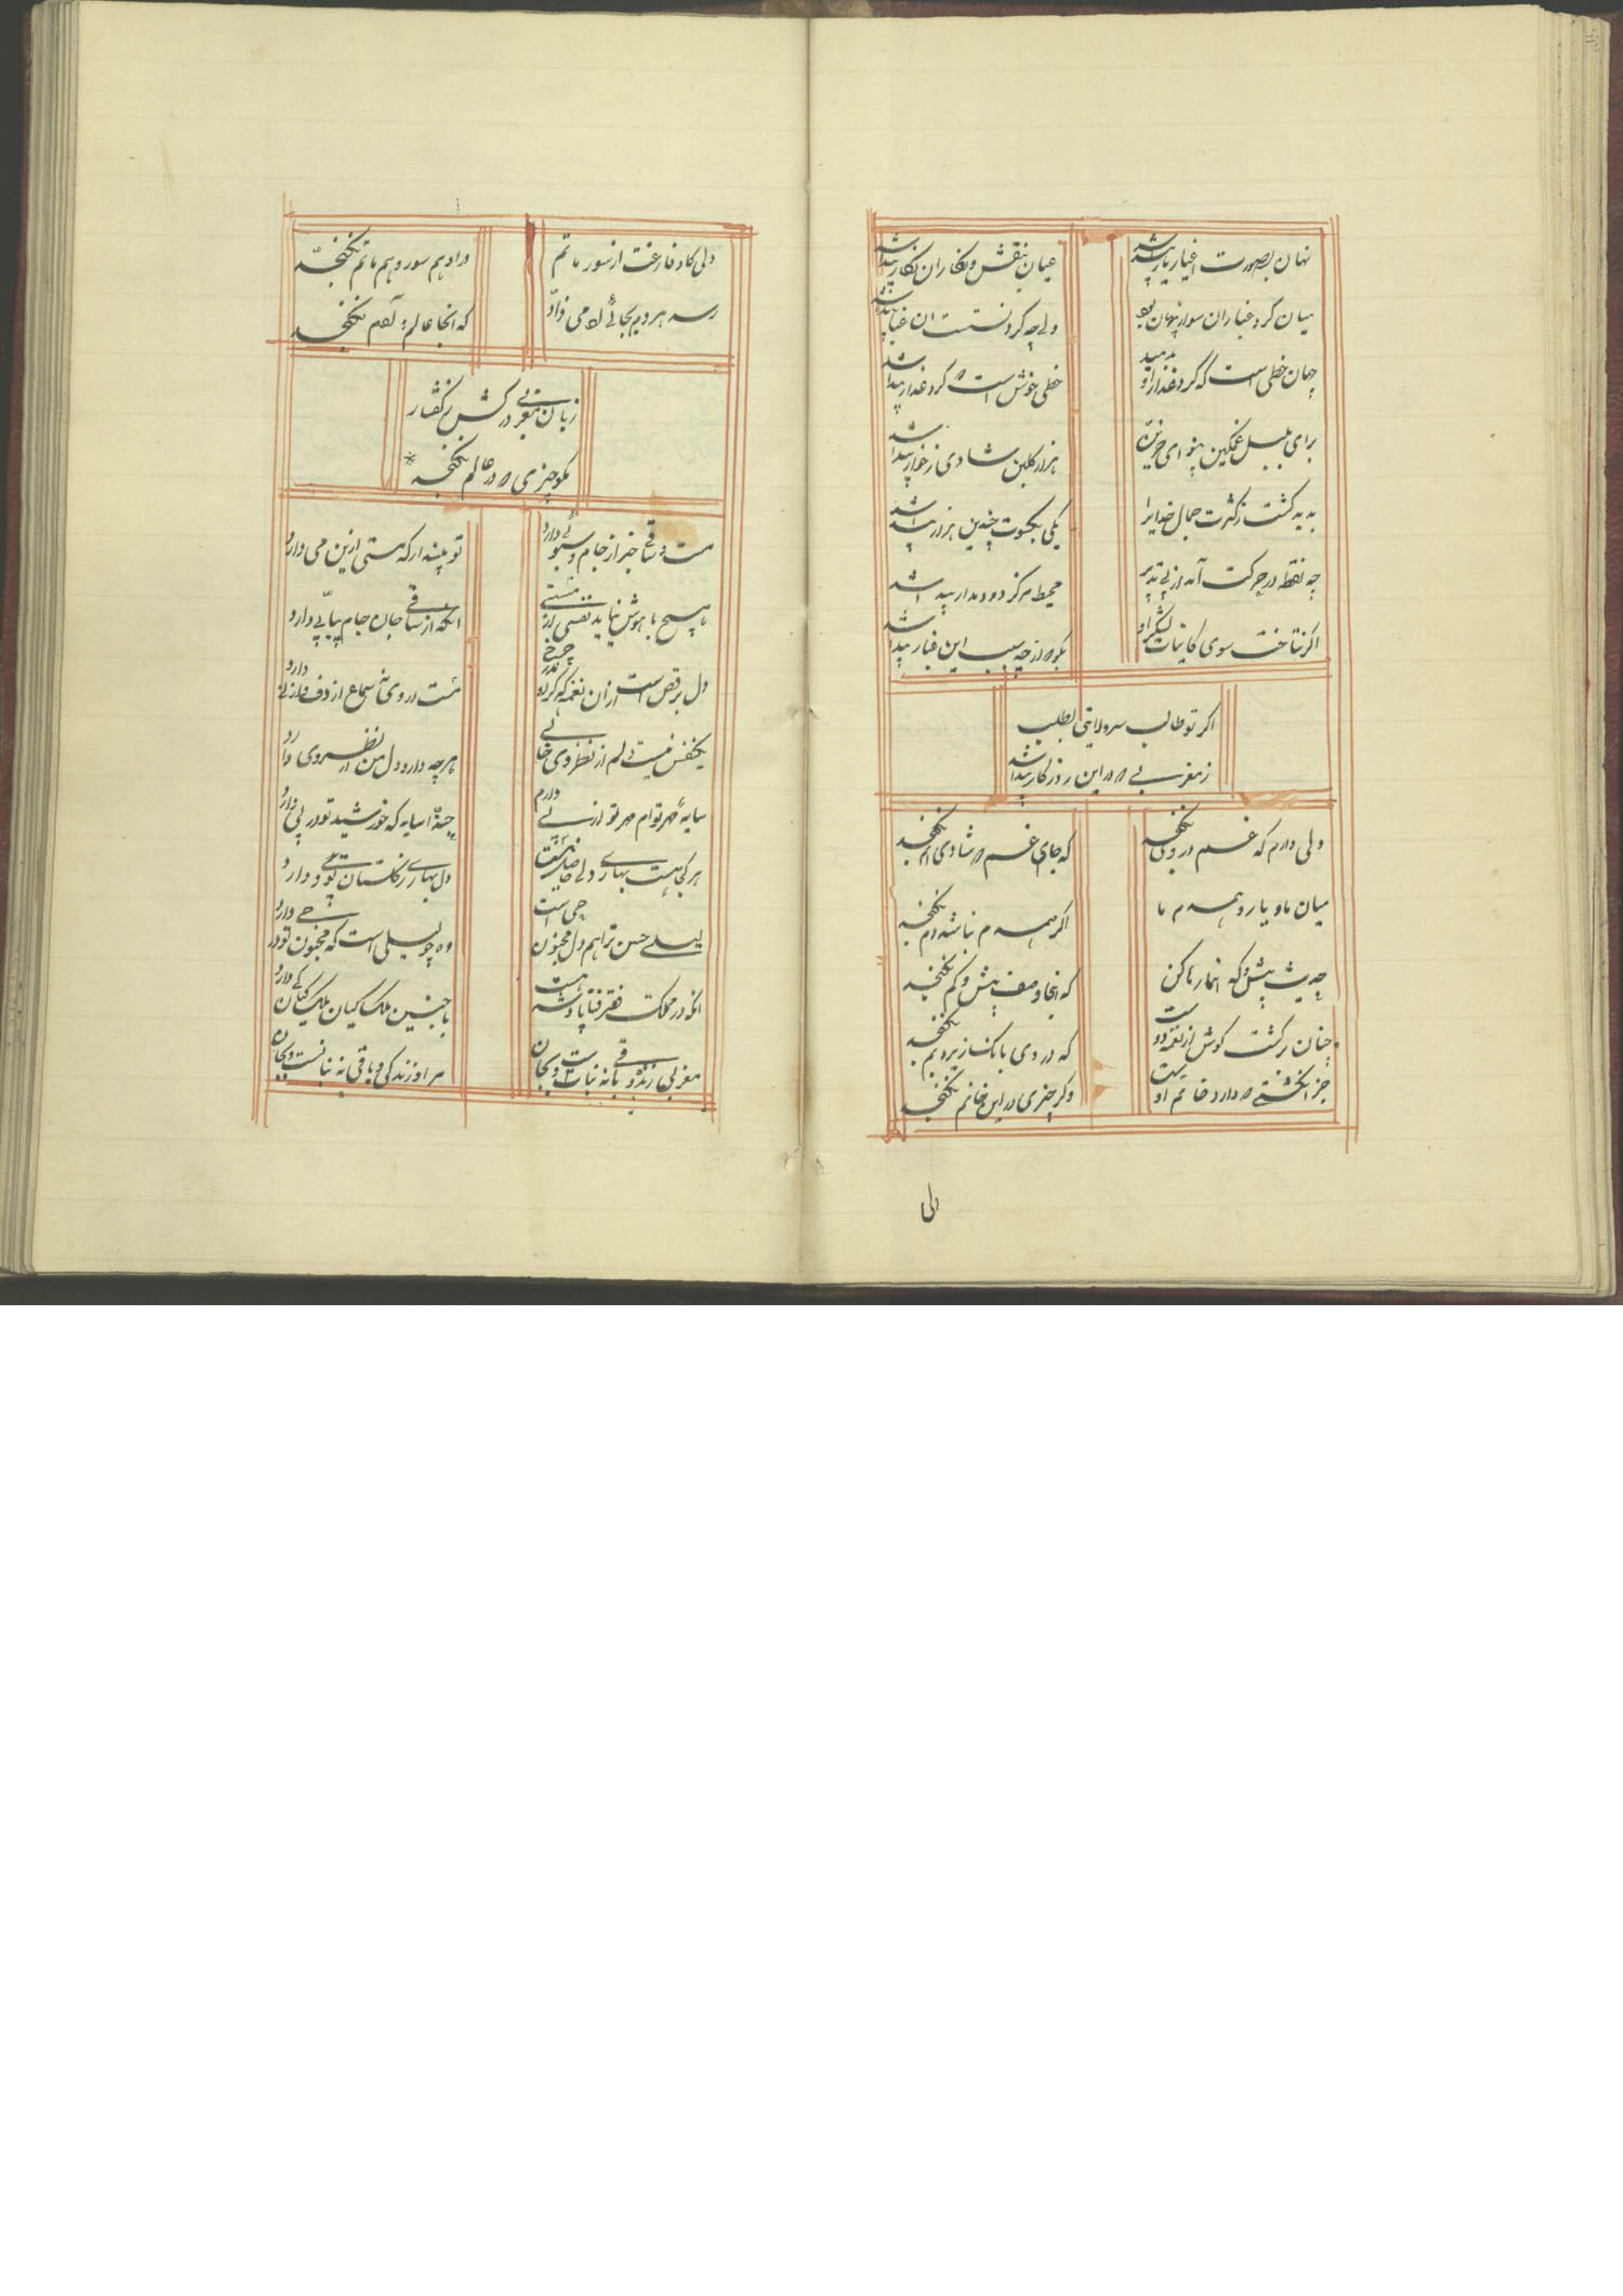 نهان بصورت اغیار یار پیدا شد
عیان بنقش و نگار ان نگار پیدا شد
میان گرد غبار ان سوار پنهان بود
ولی چه گرد نشست ان غبار پیدا شد
جهان خطی است که گرد عذار او بدمید
خطی خوش است ه گرد عذار پیدا شد
برای بلبل غمگین بنوای حزین
هزار گلبن شادی ز خار پیدا شد
پدید گشت ز کثرت جمال خدایرا
یکی بکسوت چندین هزار پیدا شد
چه نقطه در حرکت آمد از پی تدبیر
محیط مرکز دور و مدار پیدا شد
اگر نتاخت سوی کاینات لشکر او
بگو ه از چه سبب این غبار پیدا شد
اگر تو طالب سر ولایتی بطلب
ز مغربی ه در این روزگار پیدا شد
دلی دارم که غم در وی نگنجد
که جای غم ه شادی هم نگنجد
میان ما و یار و همدم ما
اگر همدم نباشد دم نگنجد
حدیث بیش و کم اینجا رها کن
که اینجا وصف بیش و کم نگنجد
چنان پر گشت گوش از نغمه دوست
که در وی بانک زیر و بم نگنجد
جز انگشتی ه دارد خاتم او
دگر چیزی در این خاتم نگنجد
دلی
دلی کاو فارغست از سور ماتم
در او هم سور و هم ماتم نگنجد
رسد هر دم بجائی ادمی زاد
که انجا عالم آدم نگنجد
زبان مغربی در کش ز گفتار
مگو چیزی ه در عالم نگنجد
مست ساقی خبر از جام و سبوئی دارد
تو مپندار که مستی از این می دارد
هیچ با هوش نیاید نفسی از مستی
انکه از ساقی جان جام پیاپی دارد
دل برقص است از ان نغمه که گردون چرخ
یکنفس نیست دلم از نظر وی خالی
هرچه دارد دل من از نظر وی دارد
سایه مهر توام مهر تو از پی دارم
حبذا سایه که خورشید تو در پی دارد
هر کجا هست بهاری دلی
دل بهاری ز گلستان تو دارد
لیلی حسن تراهم دل مجنون حی است
وه چو لیلی است که مجنون تو در حی دارد
انکه در مملکت فقر فنا پادشه است
با چنین ملک کیان ملک کیان کی دارد
مغربی زنده و باقی نه بنانست و بجان
مر او زندگی و باقی نه بنانست و بجان